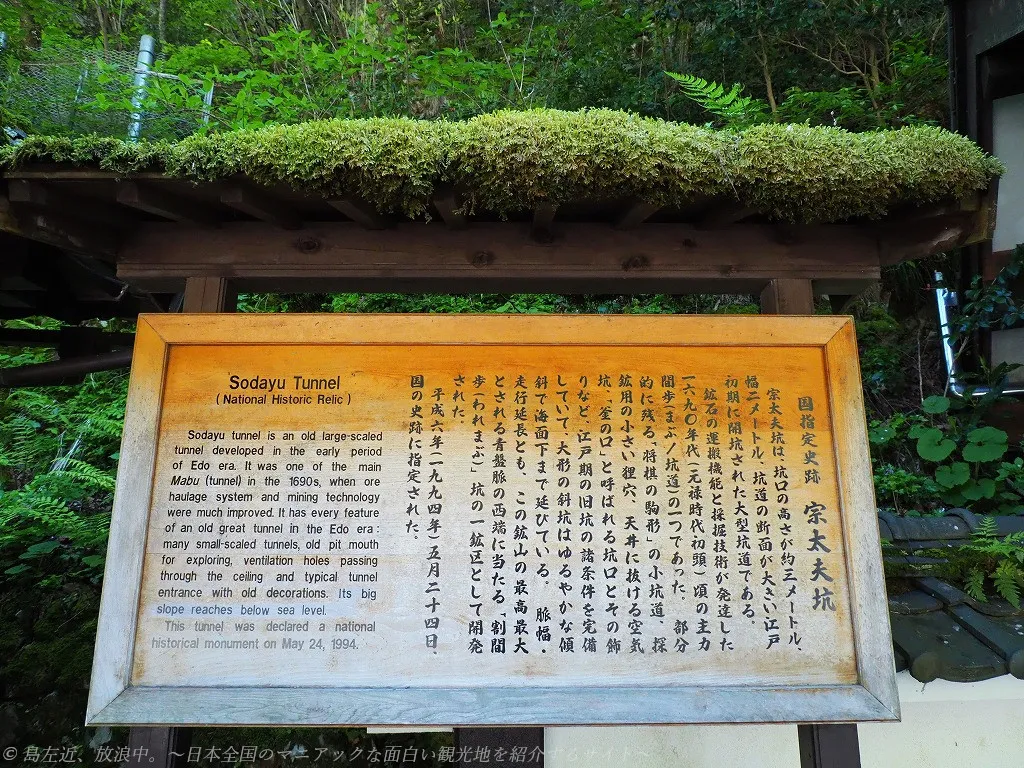 Sodayu Tunnel
( National Historic Relic )
Sodayu tunnel is an old large-scaled
tunnel developed in the early period
of Edo era. It was one of the main
Mabu (tunnel) in the 1690s, when ore
haulage system and mining technology
were much improved. It has every feature
of an old great tunnel in the Edo era :
many small-scaled tunnels, old pit mouth
for exploring, ventilation holes passing
through the ceiling and typical tunnel
entrance with old decorations. Its big
slope reaches below sea level.
This tunnel was declared a national
historical monument on May 24, 1994.
国指定史跡 宗太夫坑
宗太夫坑は、坑口の高さが約三メートル、
幅二メートル、坑道の断面が大きい江戸
初期に開坑された大型坑道である。
鉱石の運搬機能と採掘技術が発達した
一六九〇年代(元禄時代・初頭)頃の主力
間歩(まぶ/坑道)の一つであった。部分
的に残る「将棋の駒形」の小坑道、探
鉱用の小さい狸穴、天井に抜ける空気
坑、「釜の口」と呼ばれる坑口とその飾
りなど、江戸期の旧坑の諸条件を完備
していて、大形の斜坑はゆるやかな傾
斜で海面下まで延びている。 脈幅・
走行延長とも、この鉱山の最高最大
とされる青盤脈の西端に当たる「割間
歩(われまぶ)」坑の一鉱区として開発
された。
平成六年(一九九四年)五月二十四日、
国の史跡に指定された。
© 島左近、放浪中。～日本全国のマニアックな面白い観光地を紹介するサイト～